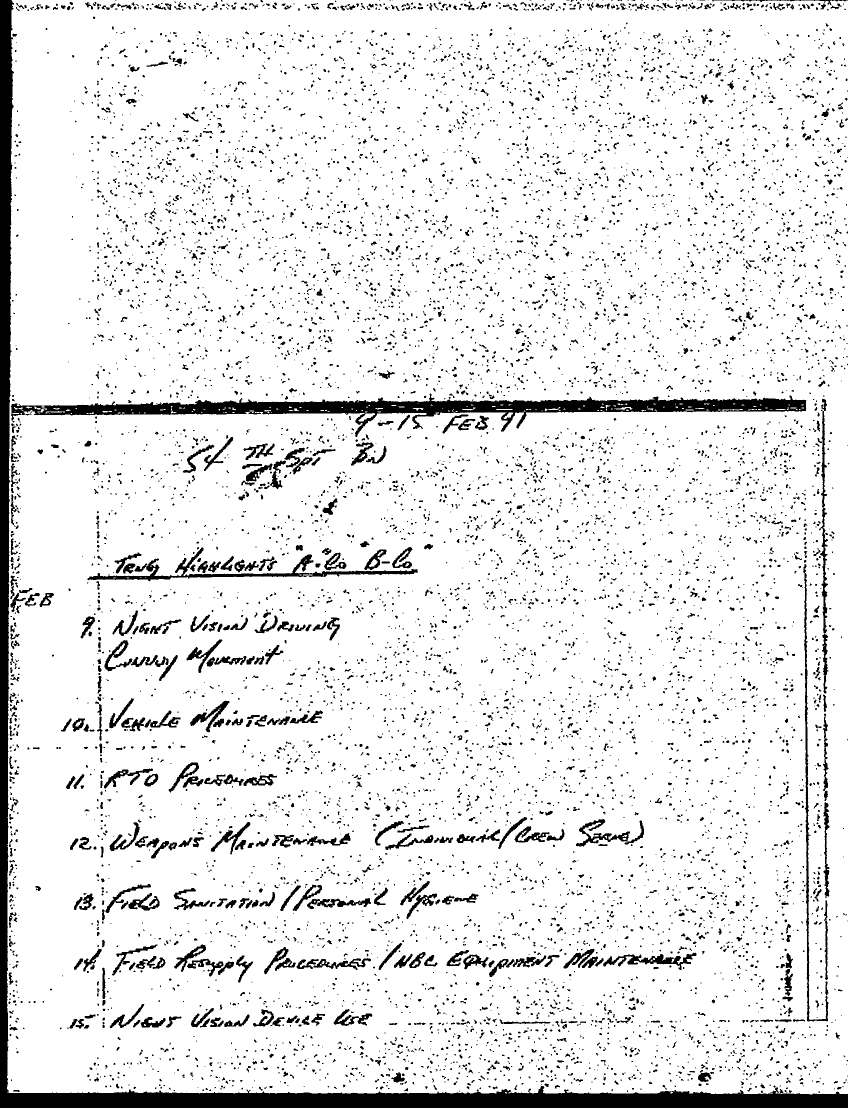 9-15 FEB 91
54 TH SPT BN
TRNG HIGHLIGHTS "A-Co" "B-Co"
FEB
9. NIGHT VISION DRIVING
CONVOY MOVEMENT
10. VEHICLE MAINTENANCE
11. RTO PROCEDURES
12. WEAPONS MAINTENANCE (INDIVIDUAL/CREW SERVE)
13. FIELD SANITATION / PERSONAL HYGIENE
14. FIELD RESUPPLY PROCEDURES / NBC EQUIPMENT MAINTENANCE
15. NIGHT VISION DEVICE USE